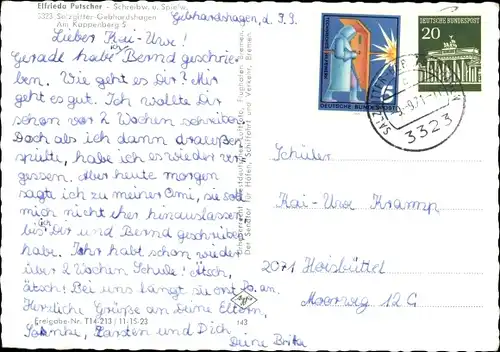 Elfriede Putscher - Schreibw. u. Spielw.
3323 Salzgitter-Gebhardshagen
Am Kappenberg 5
Gebhardshagen, d. 9.9.
Lieber Kai-Uwe!
Gerade habe ich Bernd geschrie-
ben. Wie geht es Dir? Mir
geht es gut. Ich wollte Dir
schon vor 2 Wochen schreiben
Doch als ich dann draußen
spielte, habe ich es wieder ver-
gessen. Aber heute morgen
sagte ich zu meiner Omi, sie soll
mich nicht eher hinauslassen
bis ich Dir und Bernd geschrieben
habe. Ihr habt schon wieder
über 2 Wochen Schule! Ätsch,
ätsch! Bei uns fängt sie erst an.
Herzliche Grüße an Deine Eltern,
Carsten und Dich
Deine Brita
Freigabe-Nr. T14-213 / 11-15-23
143
Der Senator für Häfen, Schiffahrt und Verkehr, Bremen
DEUTSCHE BUNDESPOST
5
DEUTSCHE BUNDESPOST
20
3323
Schüler
Kai-Uwe Kramp
2071 Hoisbüttel
Moorweg 12 C